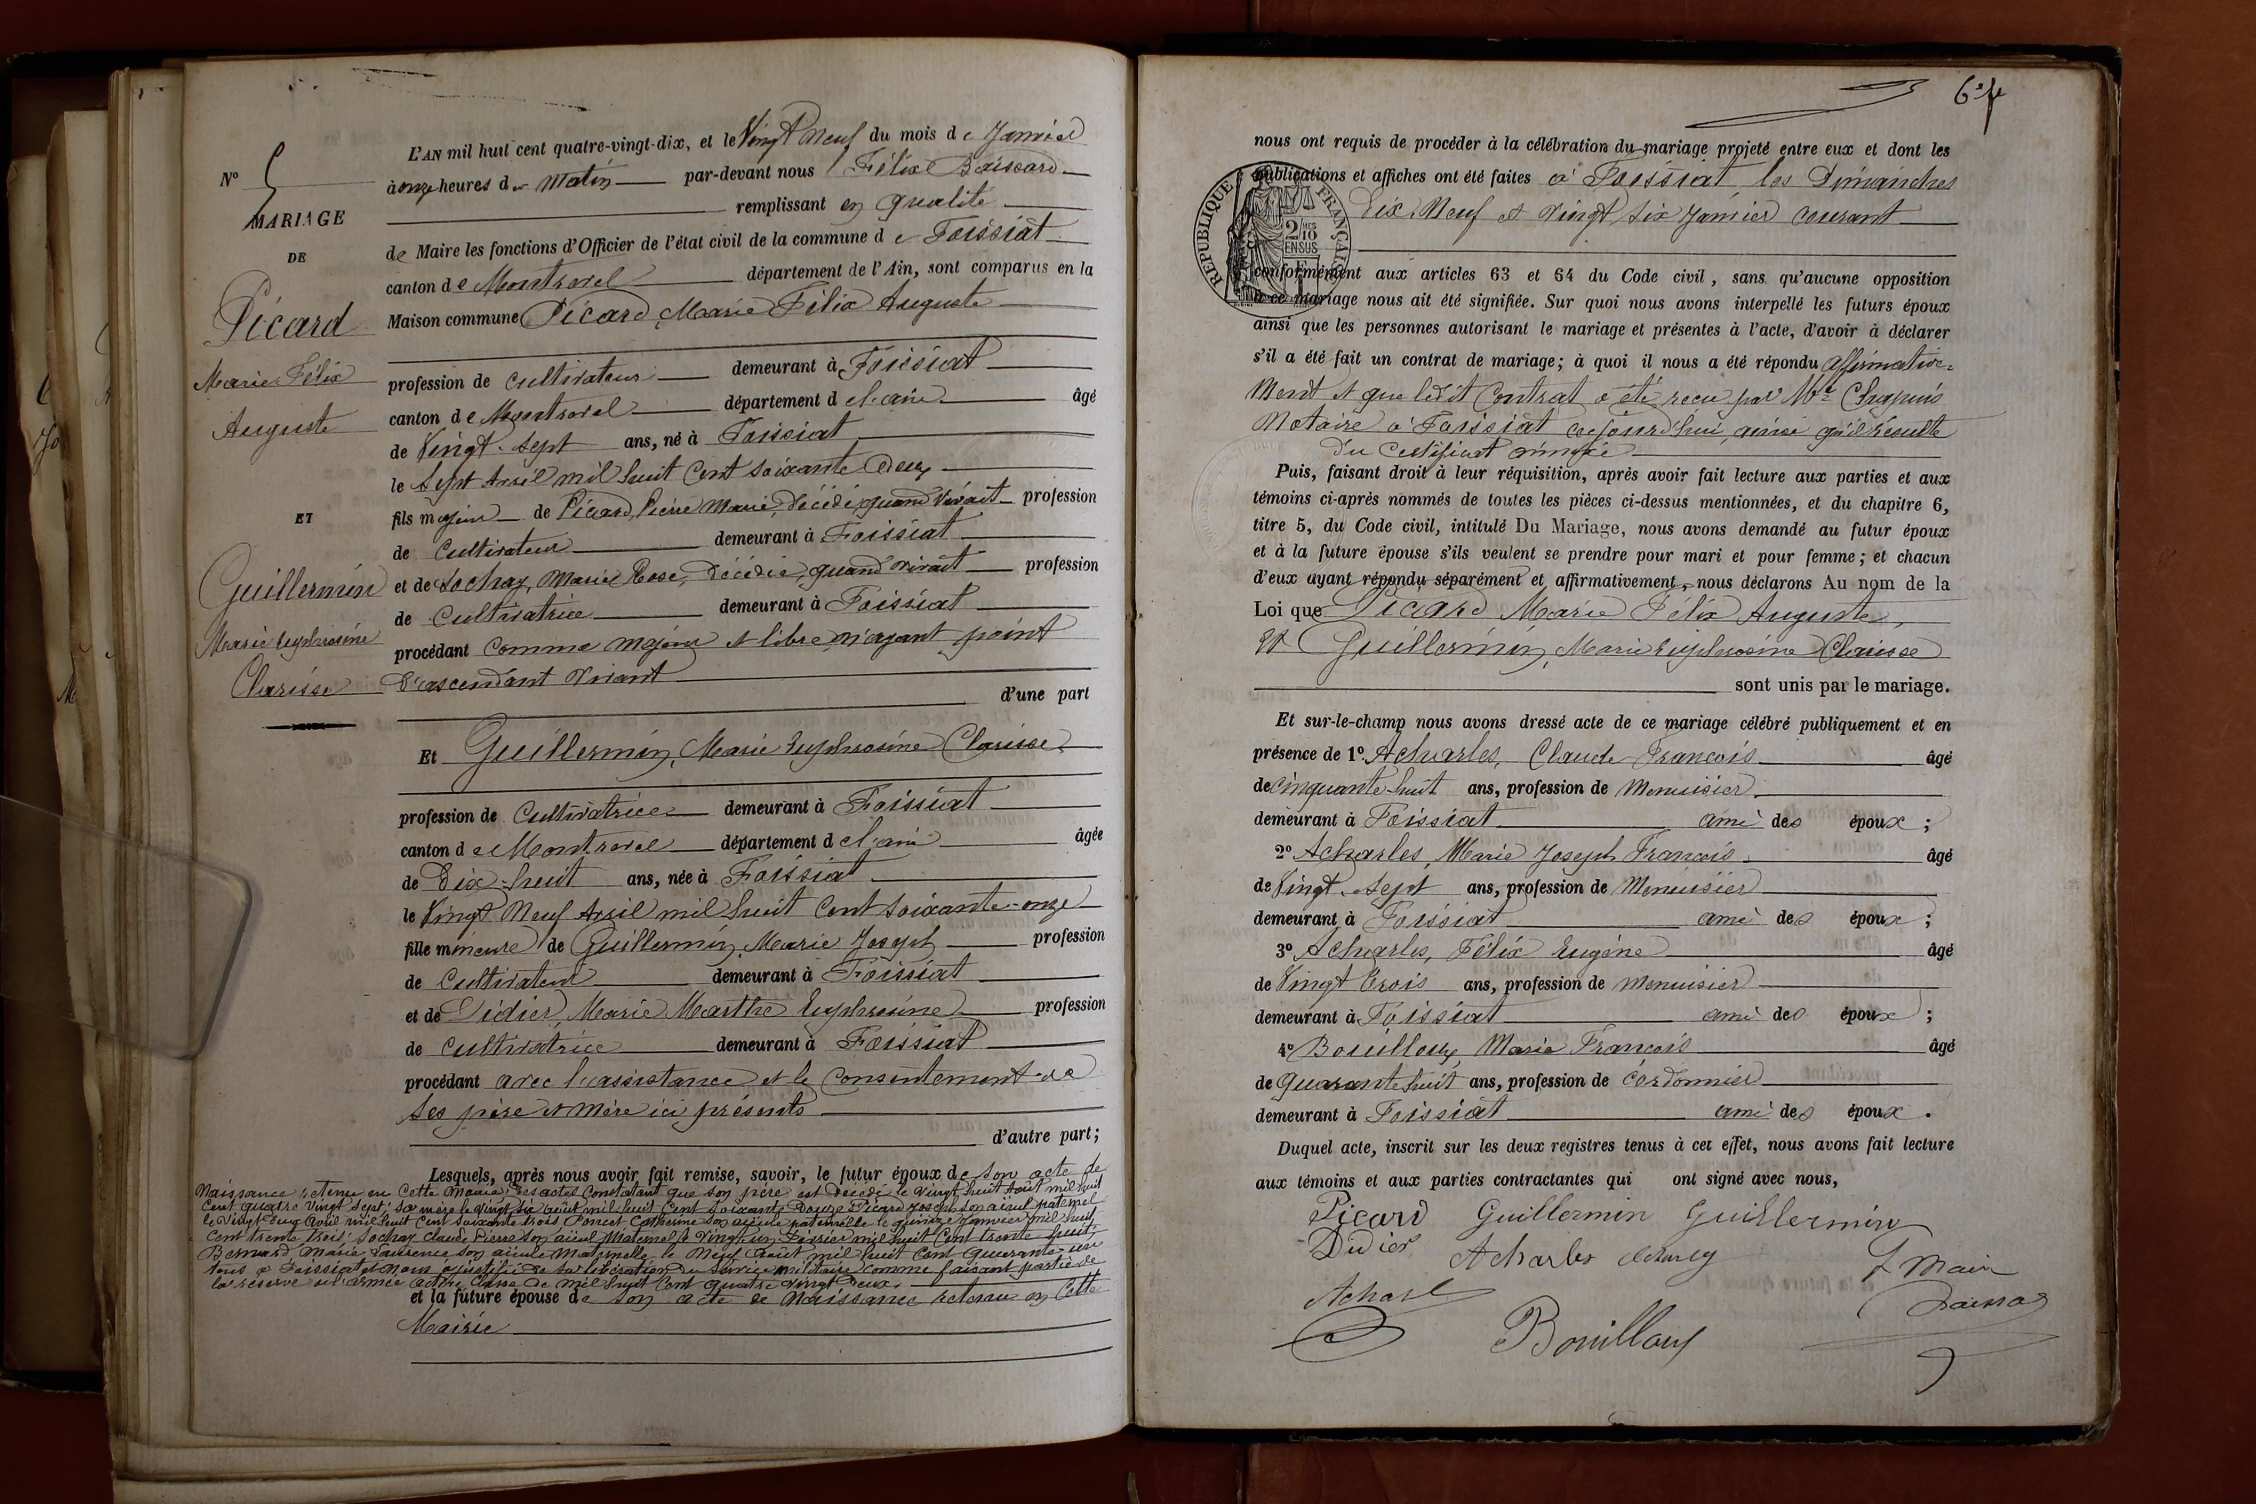 N° 5
MARIAGE
DE
Picard
Marie Félix
Auguste
ET
Guillermin
Marie Euphrosine
Clarisse
L'AN mil huit cent quatre-vingt-dix, et le Vingt Neuf du mois de Janvier
à onze heures du Matin par-devant nous Félix Boissard
remplissant en qualité
de Maire les fonctions d'Officier de l'état civil de la commune de Foissiat
canton de Montrevel département de l'Ain, sont comparus en la
Maison commune Picard, Marie Félix Auguste
profession de cultivateur demeurant à Foissiat
canton de Montrevel département de l'ain âgé
de Vingt-sept ans, né à Foissiat
le Sept Avril mil huit Cent soixante Deux
fils majeur de Picard, Pierre Marie, décédé, quand vivait profession
de Cultivateur demeurant à Foissiat
et de Sochay, Marie Rose, décédée, quand vivait profession
de Cultivatrice demeurant à Foissiat
procédant comme majeur et libre n'ayant point
d'ascendant vivant
d'une part
Et Guillermin, Marie Euphrosine Clarisse
profession de Cultivatrice demeurant à Foissiat
canton de Montrevel département de l'ain âgée
de Dix-huit ans, née à Foissiat
le Vingt Neuf Avril mil huit Cent soixante-onze
fille mineure de Guillermin, Marie Joseph profession
de Cultivateur demeurant à Foissiat
et de Didier, Marie Marthe Euphrosine profession
de Cultivatrice demeurant à Foissiat
procédant avec l'assistance et le Consentement de
ses père et mère ici présents
d'autre part;
Lesquels, après nous avoir fait remise, savoir, le futur époux de son acte de
Naissance retenu en Cette Mairie, des actes Constatant que son père est décédé le vingt huit Août mil huit
Cent quatre Vingt Sept; sa mère le Vingt six août mil huit Cent soixante Douze Picard Joseph son aïeul paternel
le Vingt Deux Avril mil huit Cent soixante trois Poncet Catherine son aïeule paternelle le quinze Janvier mil huit
Cent trente trois; Sochay Claude Pierre son aïeul Maternel le Vingt un Février mil huit Cent trente huit,
Bernard Marie Laurence son aïeule Maternelle le Neuf Août mil huit Cent Quarante-un
tous à Foissiat et Nous a justifié de sa libération du Service militaire Comme faisant partie de
la réserve de l'armée active Classe de mil huit Cent quatre Vingt Deux.
et la future épouse de son acte de Naissance retenu en Cette
Mairie
6
nous ont requis de procéder à la célébration du mariage projeté entre eux et dont les
publications et affiches ont été faites à Foissiat les Dimanches
Dix Neuf et Vingt Six Janvier courant
RÉPUBLIQUE FRANÇAISE
2/10
EN SUS
conformément aux articles 63 et 64 du Code civil, sans qu'aucune opposition
à ce mariage nous ait été signifiée. Sur quoi nous avons interpellé les futurs époux
ainsi que les personnes autorisant le mariage et présentes à l'acte, d'avoir à déclarer
s'il a été fait un contrat de mariage; à quoi il nous a été répondu affirmative-
ment et que ledit Contrat a été reçu par Me Chapuis
Notaire à Foissiat cejourd'hui, ainsi qu'il résulte
du Certificat annexé
Puis, faisant droit à leur réquisition, après avoir fait lecture aux parties et aux
témoins ci-après nommés de toutes les pièces ci-dessus mentionnées, et du chapitre 6,
titre 5, du Code civil, intitulé Du Mariage, nous avons demandé au futur époux
et à la future épouse s'ils veulent se prendre pour mari et pour femme; et chacun
d'eux ayant répondu séparément et affirmativement, nous déclarons Au nom de la
Loi que Picard Marie Félix Auguste,
Et Guillermin, Marie Euphrosine Clarisse
sont unis par le mariage.
Et sur-le-champ nous avons dressé acte de ce mariage célébré publiquement et en
présence de 1° Acharles, Claude François âgé
de cinquante huit ans, profession de Menuisier
demeurant à Foissiat ami des époux;
2° Acharles, Marie Joseph François âgé
de Vingt-sept ans, profession de Menuisier
demeurant à Foissiat ami des époux;
3° Acharles, Félix Eugène âgé
de Vingt trois ans, profession de Menuisier
demeurant à Foissiat ami des époux;
4° Bouilloux, Marie François âgé
de quarante huit ans, profession de Cordonnier
demeurant à Foissiat ami des époux.
Duquel acte, inscrit sur les deux registres tenus à cet effet, nous avons fait lecture
aux témoins et aux parties contractantes qui ont signé avec nous,
Picard Guillermin Guillermin
Didier Acharles
Bouilloux